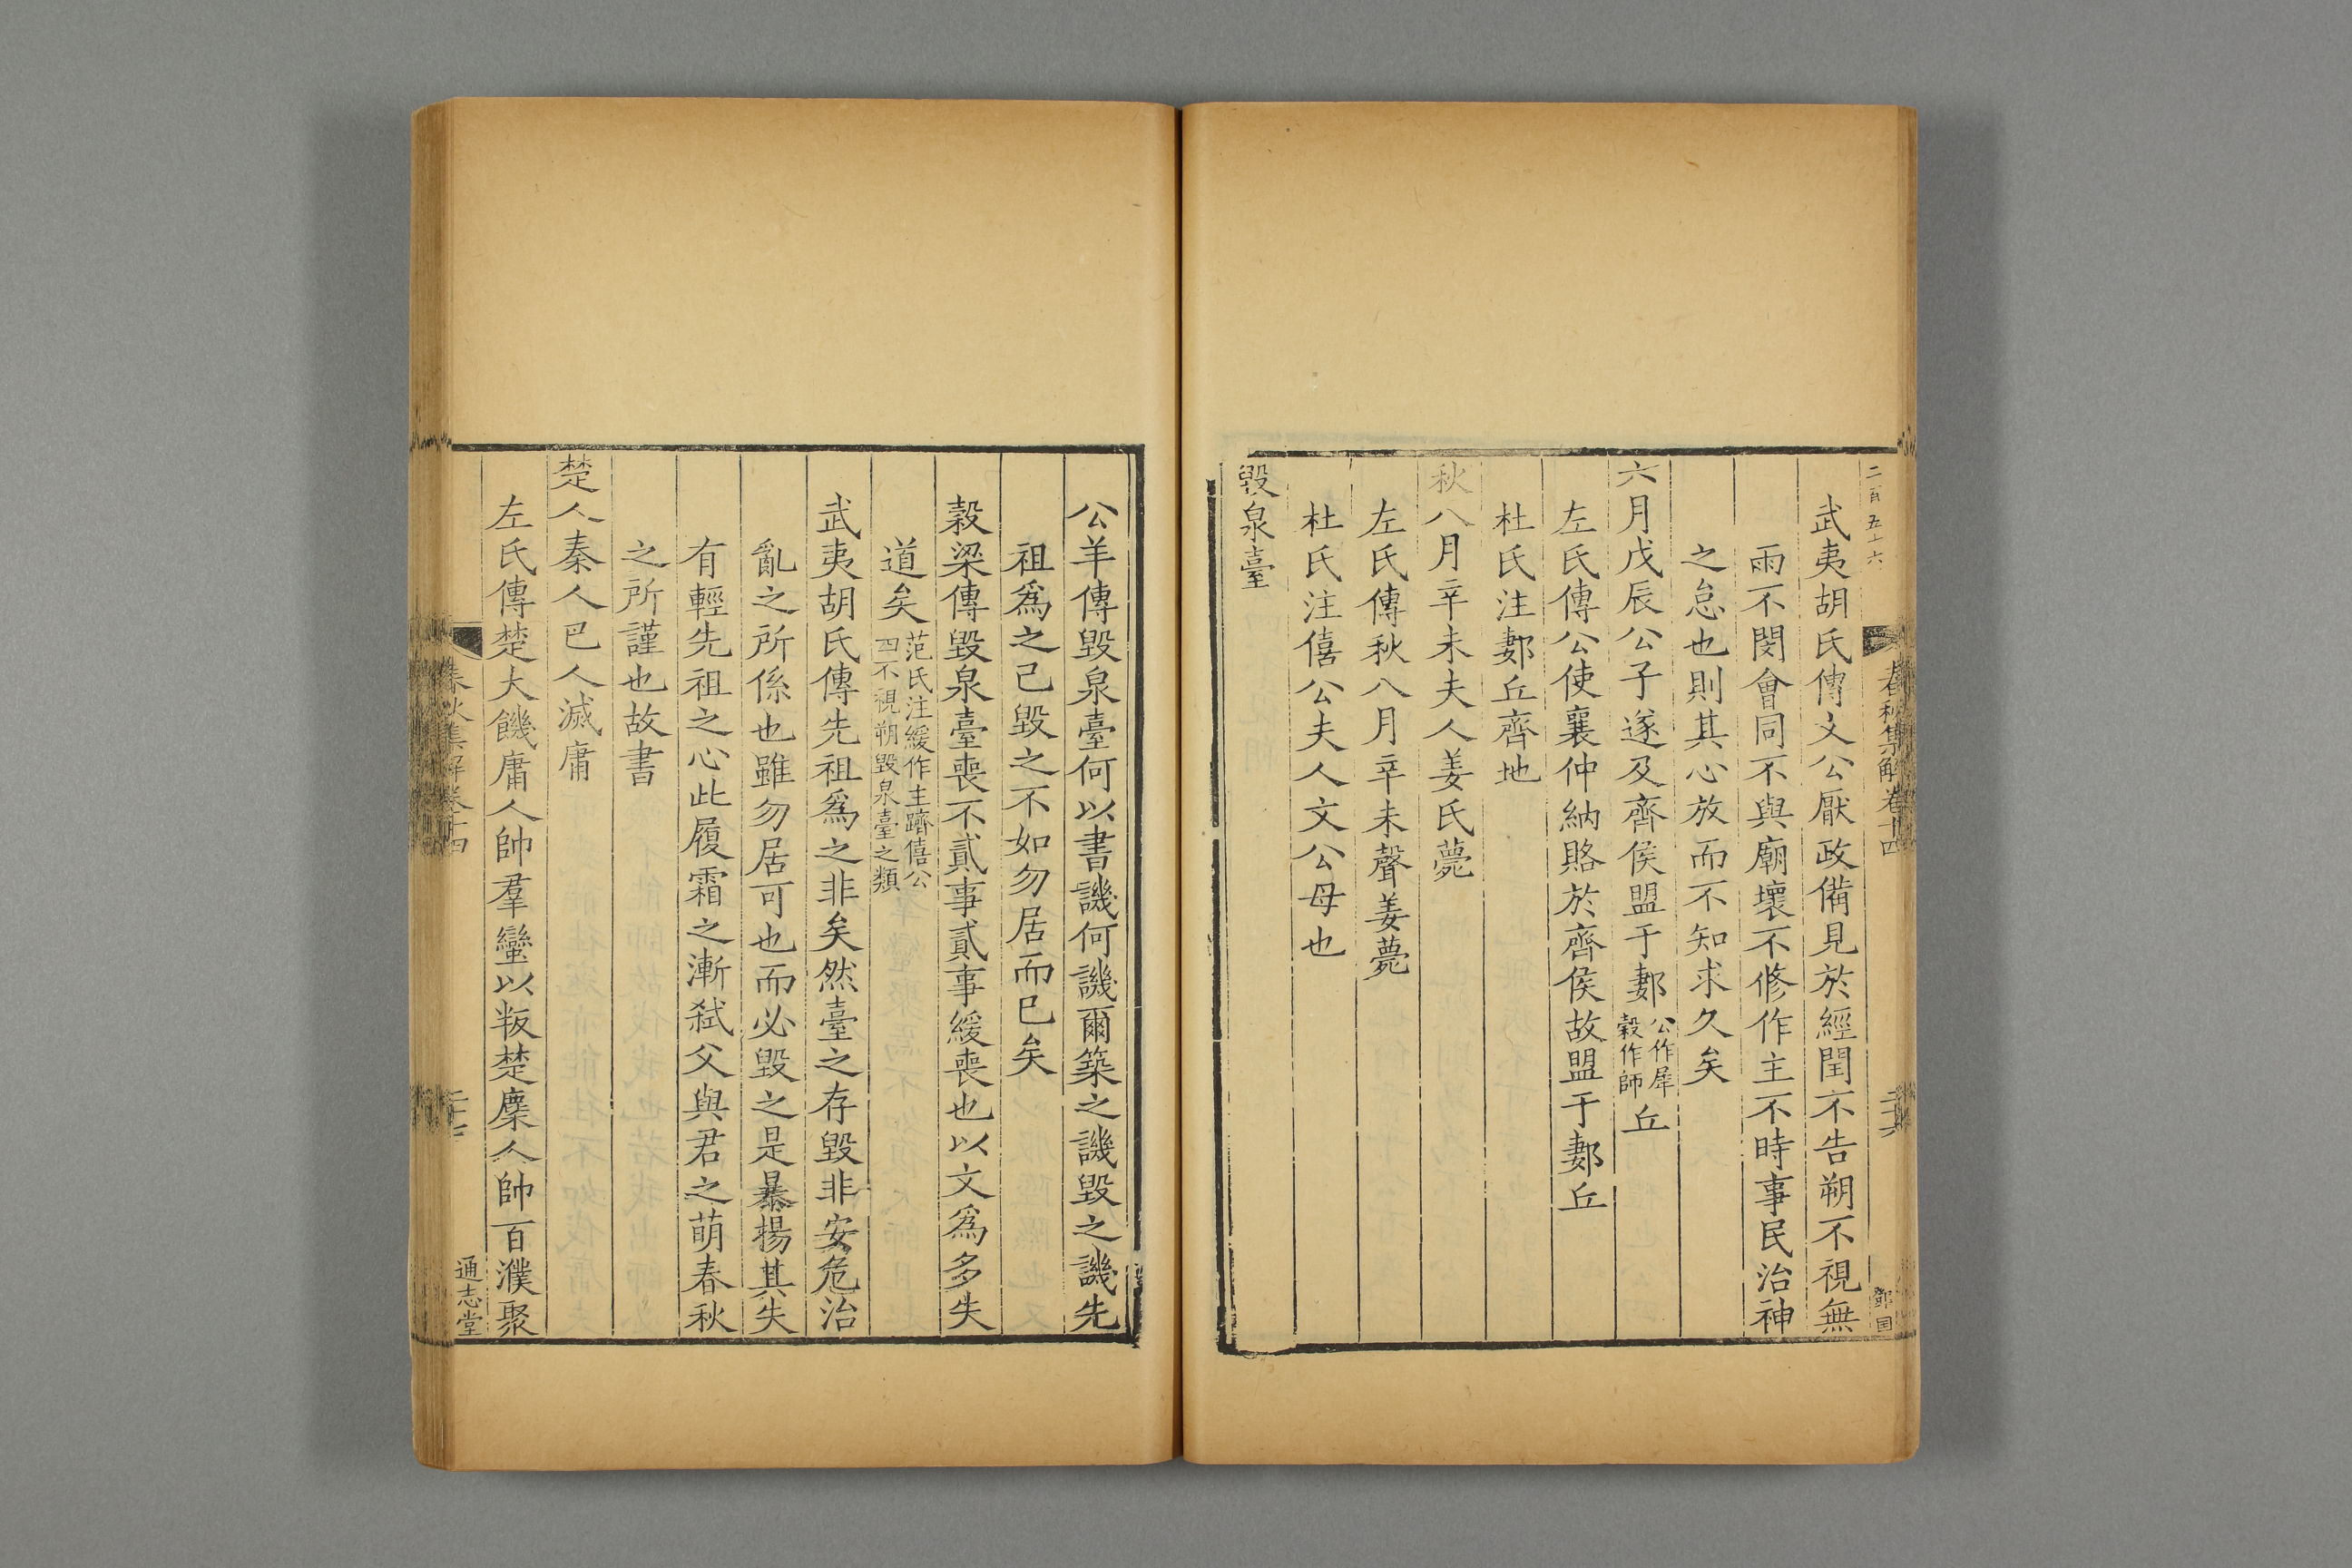 二百五十六
春秋集解卷十四
二十六
武夷胡氏傳文公厭政備見於經閏不告朔不視無
雨不閔會同不與廟壞不修作主不時事民治神
之怠也則其心放而不知求久矣
六月戊辰公子遂及齊侯盟于郪公作犀穀作師丘
左氏傳公使襄仲納賂於齊侯故盟于郪丘
杜氏注郪丘齊地
秋八月辛未夫人姜氏薨
左氏傳秋八月辛未聲姜薨
杜氏注僖公夫人文公母也
毀泉臺
公羊傳毀泉臺何以書譏何譏爾築之譏毀之譏先
祖爲之己毀之不如勿居而已矣
穀梁傳毀泉臺喪不貳事貳事緩喪也以文爲多失
道矣范氏注緩作主躋僖公四不視朔毀泉臺之類
武夷胡氏傳先祖爲之非矣然臺之存毀非安危治
亂之所係也雖勿居可也而必毀之是暴揚其失
有輕先祖之心此履霜之漸弒父與君之萌春秋
之所謹也故書
楚人秦人巴人滅庸
左氏傳楚大饑庸人帥羣蠻以叛楚麇人帥百濮聚
春秋集解卷十四
二十七
通志堂